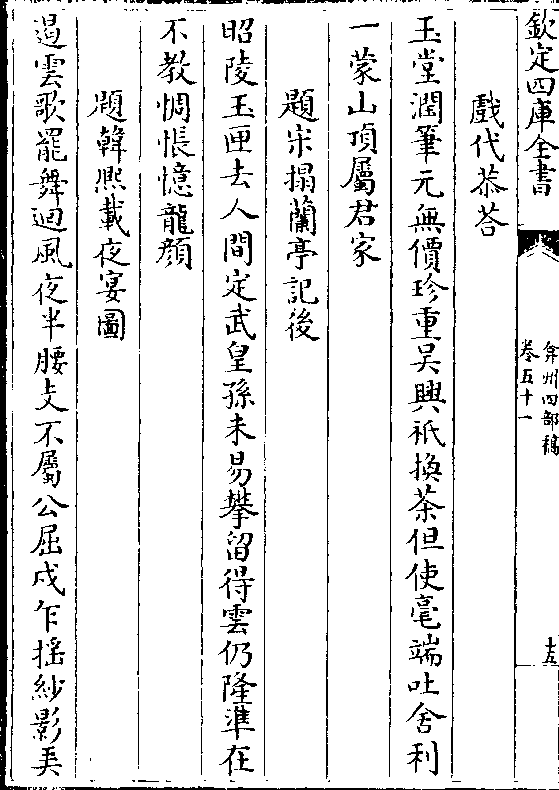 欽定四庫全書
弇州四部稿
卷五十一
十五
戲代恭荅
玉堂潤筆元無價珍重吳興祇換茶但使毫端吐舍利
一蒙山頂屬君家
題宋搨蘭亭記後
昭陵玉匣去人間定武皇孫未易攀留得雲仍隆準在
不教惆悵憶龍顏
題韓熙載夜宴圖
遏雲歌罷舞迴風夜半腰支不屬公屈戍乍搖紗影